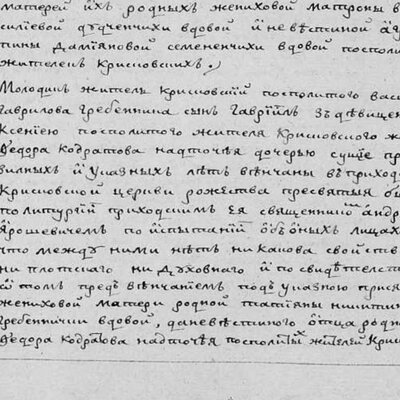 матерей ихъ родныхъ жениховой матроны в
силіевой дудченчихи вдовой и невѣстиной а
тины даміяновой семененчихи вдовой посполи
жителей крисковскихъ.
Молодикъ житель крисковскій посполитого васи
гаврилова гребенника сынъ гавріилъ зъ дѣвицею
Ксеніею посполитого жителя крисковского ж
Ѳедора кодратова надточѣя дочерью сущіе пр
вилныхъ и указныхъ лѣтъ вѣнчаны въ приход
крисковской церкви рожества пресвятыя б
по литургіи приходскимъ ея священникомъ андр
ярошевичемъ по испытаніи обоихъ лицахъ
что между ними нѣтъ ни какова свойств
ни плотскаго ни духовнаго и по свидѣтелст
о томъ предъ вѣнчаніемъ подъ указною прися
жениховой матери родной татіяны никитин
гребеннички вдовой, да невѣстиного отца родн
Ѳедора кодратова надточѣя посполитыхъ жителей крис